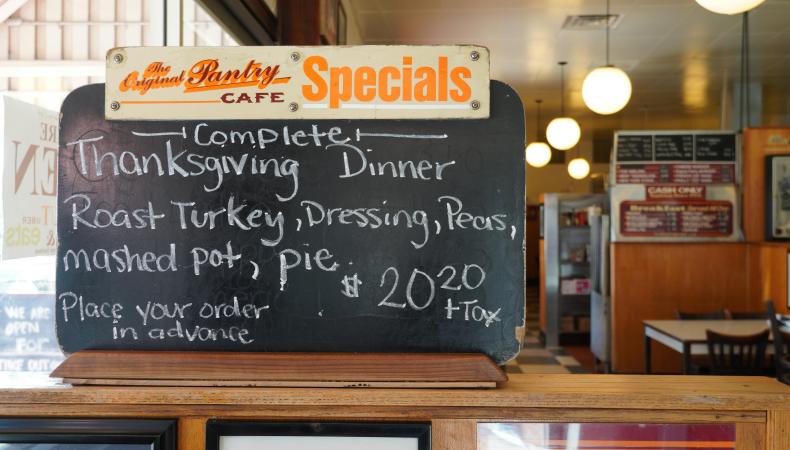 The
Original Pantry
CAFE
Specials
Complete
Thanksgiving Dinner
Roast Turkey, Dressing, Peas,
mashed pot, pie.
$ 20 20
+Tax
Place your order
in advance
WE ARE
OPEN
FOR
TAKE OUT
CASH ONLY
Breakfast